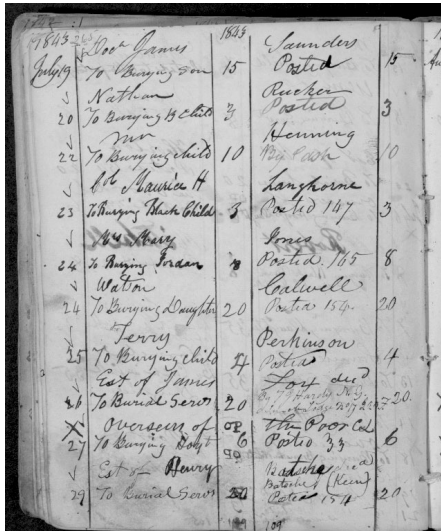 1843
1843
Doct James Saunders
July 19 To Burying Son 15 Posted 15
Nathan Rucker
20 To Burying B Child 3 Posted 3
Mr Henning
22 To Burying child 10 By Cash 10
Col Maurice H Langhorne
23 To Burying Black Child 3 Posted 147 3
Mrs Mary Jones
24 To Burying Jordan 8 Posted 165 8
Watson Calwell
24 To Burying Daughter 20 Posted 154 20
Terry Perkinson
25 To Burying child 4 Posted 4
Est of James Fox
26 To Burial Servs 20 20
X Overseers of the Poor
27 To Burying 6 Posted 33 6
Est of Henry
29 To Burial Servs Posted 154 20